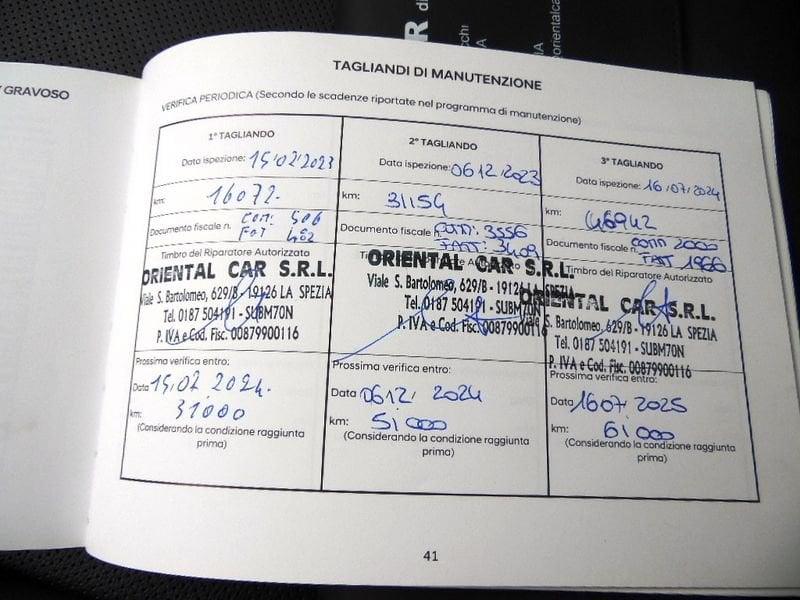 R di
cchi
NA
orientalca
GRAVOSO
TAGLIANDI DI MANUTENZIONE
VERIFICA PERIODICA (Secondo le scadenze riportate nel programma di manutenzione)
1° TAGLIANDO
Data ispezione: 15/02/2023
km: 16072.
Documento fiscale n. COM: 506
FAT 482
Timbro del Riparatore Autorizzato
ORIENTAL CAR S.R.L.
Viale S. Bartolomeo, 629/B - 19126 LA SPEZIA
Tel. 0187 504191 - SUBM70N
P. IVA e Cod. Fisc. 00879900116
Prossima verifica entro:
Data 15.02 2024.
km: 31000
(Considerando la condizione raggiunta
prima)
2° TAGLIANDO
Data ispezione: 06 12 2023
km: 31154
Documento fiscale n. COM: 3556
FATT: 3409
ORIENTAL CAR S.R.L.
Viale S. Bartolomeo, 629/B - 19126 LA SPEZIA
Tel. 0187 504191 - SUBM70N
P. IVA e Cod. Fisc. 00879900116
Prossima verifica entro:
Data 06 12/ 2024
km: 51000
(Considerando la condizione raggiunta
prima)
3° TAGLIANDO
Data ispezione: 16/07/2024
km: 46942
Documento fiscale n. COM 2000
FAT 1966
Timbro del Riparatore Autorizzato
ORIENTAL CAR S.R.L.
Viale S. Bartolomeo, 629/B - 19126 LA SPEZIA
Tel. 0187 504191 - SUBM70N
P. IVA e Cod. Fisc. 00879900116
Prossima verifica entro:
Data 16/07/ 2025
km: 61000
(Considerando la condizione raggiunta
prima)
41